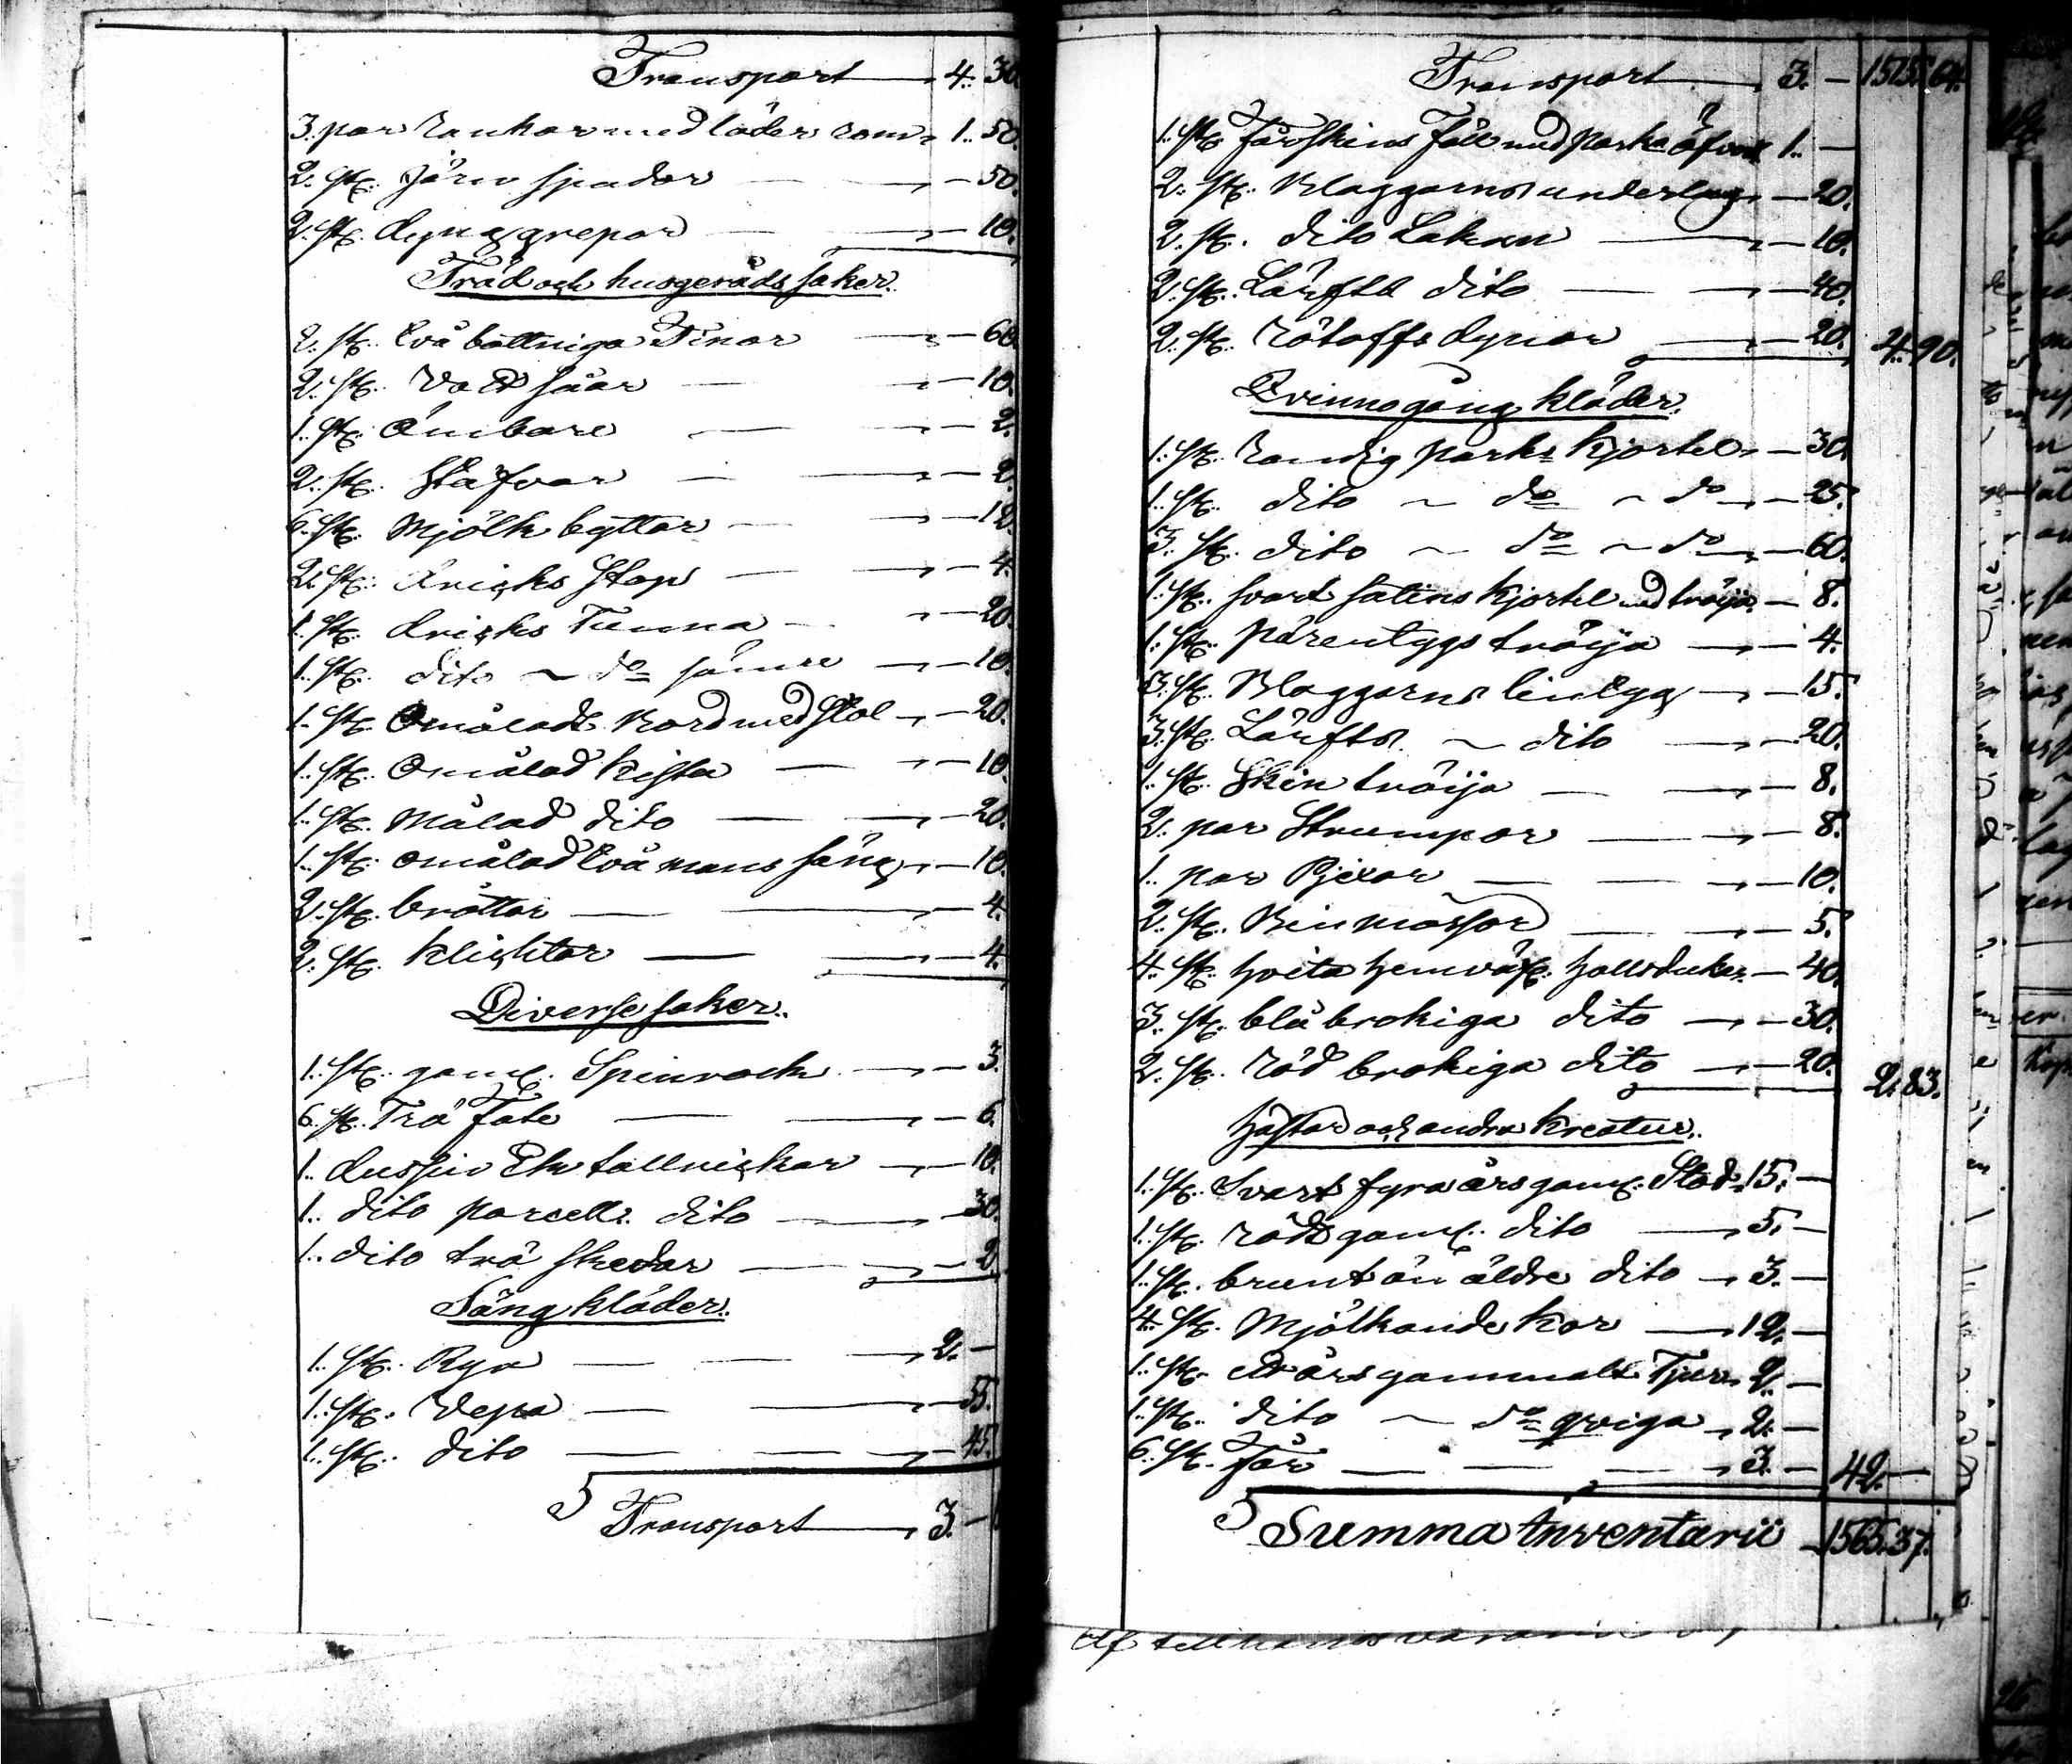 Transport 4. 30.
3. par Rankor med läder rem 1. 50.
2. st. Järn spador — 50.
2. st. dyng grepar — 10.
Träd och husgeråds saker.
2. st. två bottniga Tinor — 60.
2. st. Vatt såar — 10.
1. st. Ämbare — 2.
2. st. Stäfvor — 2.
6. st. Mjölk byttor — 12.
2. st. dricks Stop — 4.
1. st. dricks Tunna — 20.
1. st. dito ~ do sämre — 10.
1. st. Omåladt Bord med Stol — 20.
1. st. Omålad Kista — 10.
1. st. Målad dito — 20.
1. st. omålad två mans säng — 10.
2. st. bråttar — 4.
2. st. Klicktor — 4.
Diverse saker.
1. st. gaml. Spinrock — 3.
6. st. Trä fate — 6.
1. dussin Etu tallrickar — 10.
1. dito porcell. dito — 30.
1. dito trä skedar — 2.
Säng kläder.
1. st. Rya 2. —
1. st. Wepa — 55.
1. st. dito — 45.
Transport 3. —
Transport 3. — 1515. 64.
1. st. Fårskins Fäll med Parka öfver 1. —
2. st. Blaggarns underlag — 20.
2. st. dito Lakan — 10.
2. st. Lärfts dito — 40.
2. st. Götoffs dynor — 20. 4. 90.
Qvinno gång kläder.
1. st. Randig parks Kjortel — 30.
1. st. dito ~ do ~ do — 25.
3. st. dito ~ do ~ do — 60.
1. st. svart satins Kjortel med tröija — 8.
1. st. tygs tröija — 4.
3. st. Blaggarns lintyg — 15.
3. st. Lärfts ~ dito — 20.
1. st. Skin tröija — 8.
2. par Strumpor — 8.
1. par Pjexor — 10.
2. st. Binmössor — 5.
4. st. hvita hemväf. halsdukar — 40.
3. st. blå brokiga dito — 30.
2. st. röd brokiga dito — 20. 2. 83.
hästar och andra Kreatur.
1. st. Svart fyra års gaml. Stod 15. —
1. st. rödt gaml. dito 5. —
1. st. brunt än äldre dito 3. —
4. st. Mjölkande Kor 12. —
1. st. års gammalt Tjur 2. —
1. st. dito ~ do qviga 2. —
6. st. Får 3. — 42. —
Summa Inventarii 1565. 37.